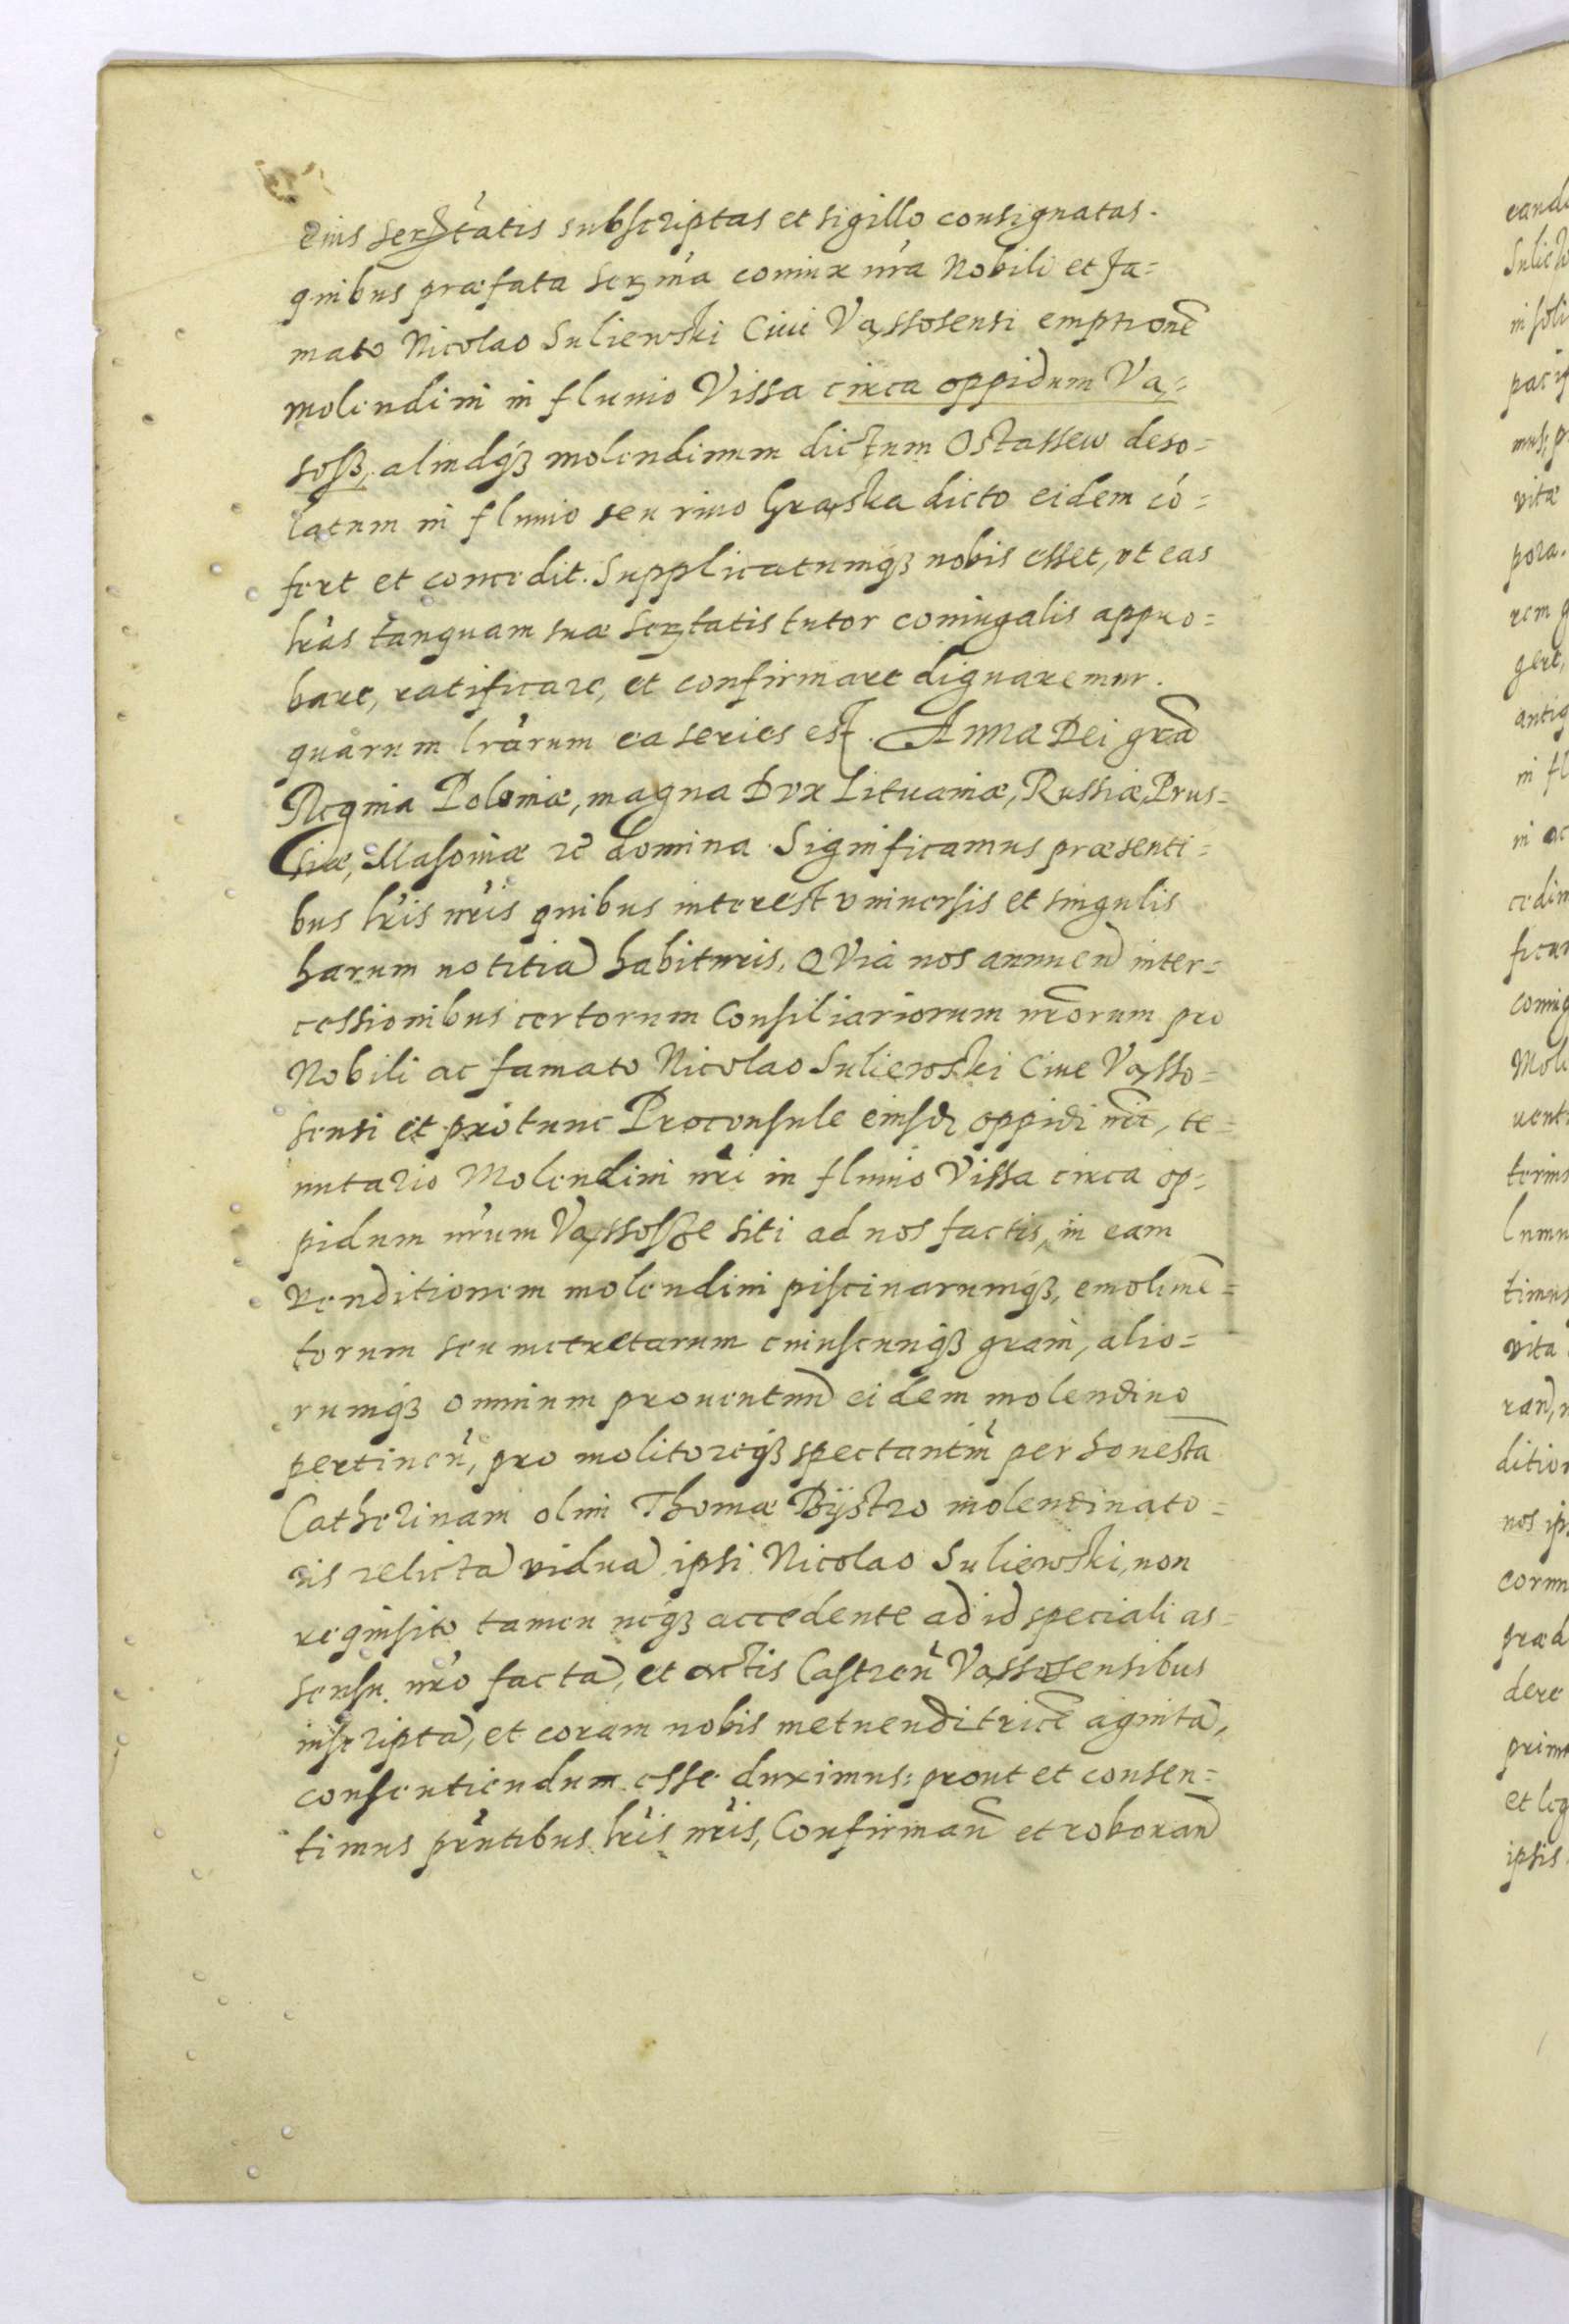 eius Serꝫtatis subscriptas et sigillo consignatas.
quibus præfata Serꝫma coniux nra Nobili et Fa=
mato Nicolao Suliewski Ciui Vąssosensi emptionē
molendini in fluuio Vissa circa oppidum Vą=
soß, aliudqꝫ molendinum dictum Ostassew deso=
latum in fluuio seu riuo Graska dicto eidem cō=
fert et concedit. Supplicatumqꝫ nobis esset, vt eas
lras tanquam suæ Serꝫtatis tutor coniugalis appro=
bare, ratificare, et confirmare dignaremur.
quarum lrarum ea series est. Anna Dei grā
Regina Poloniæ, magna Dvx Lituaniæ, Russiæ, Prus=
siæ, Masouiæ zc̄ domina. Significamus præsenti=
bus lris nris quibus interest vniuersis et singulis
harum notitiā habituris, QVia nos annuen̄ inter=
cessionibus certorum Consiliariorum nrōrum pro
Nobili ac famato Nicolao Suliewski Ciue Vąsso=
sensi et protunc Proconsule eiusdꝫ oppidi nri, te=
nutario Molendini nri in fluuio Vissa circa op=
pidum nrum Vąssosße siti ad nos factis, in eam
venditionem molendini piscinarumqꝫ, emolimē=
torum seu metretarum cuiuscunqꝫ grani, alio=
rumqꝫ omnium prouentuū eidem molendino
pertineñ, pro molitoreqꝫ spectantiū per honestā
Catherinam olim Thomæ Bÿstro molendinato=
ris relictā viduā ipsi Nicolao Suliewski, non
requisito tamen neqꝫ accedente ad id speciali as=
sensu nro factā, et actis Castreñ Vąssosensibus
inscriptā, et coram nobis
consentiendum esse duximus: prout et consen=
timus prntibus lris nris, Confirmañ et roborañ
eand
Sulie
in soli
pacif
mus; p
vitæ
pora.
rem q
gere,
antiq
in fl
in ac
cedim
ficar
coniug
Mole
uent
terius
lumn
timus
vita
ran, n
ditior
nos ip
corum
præd
dere
prima
et leg
ipsis